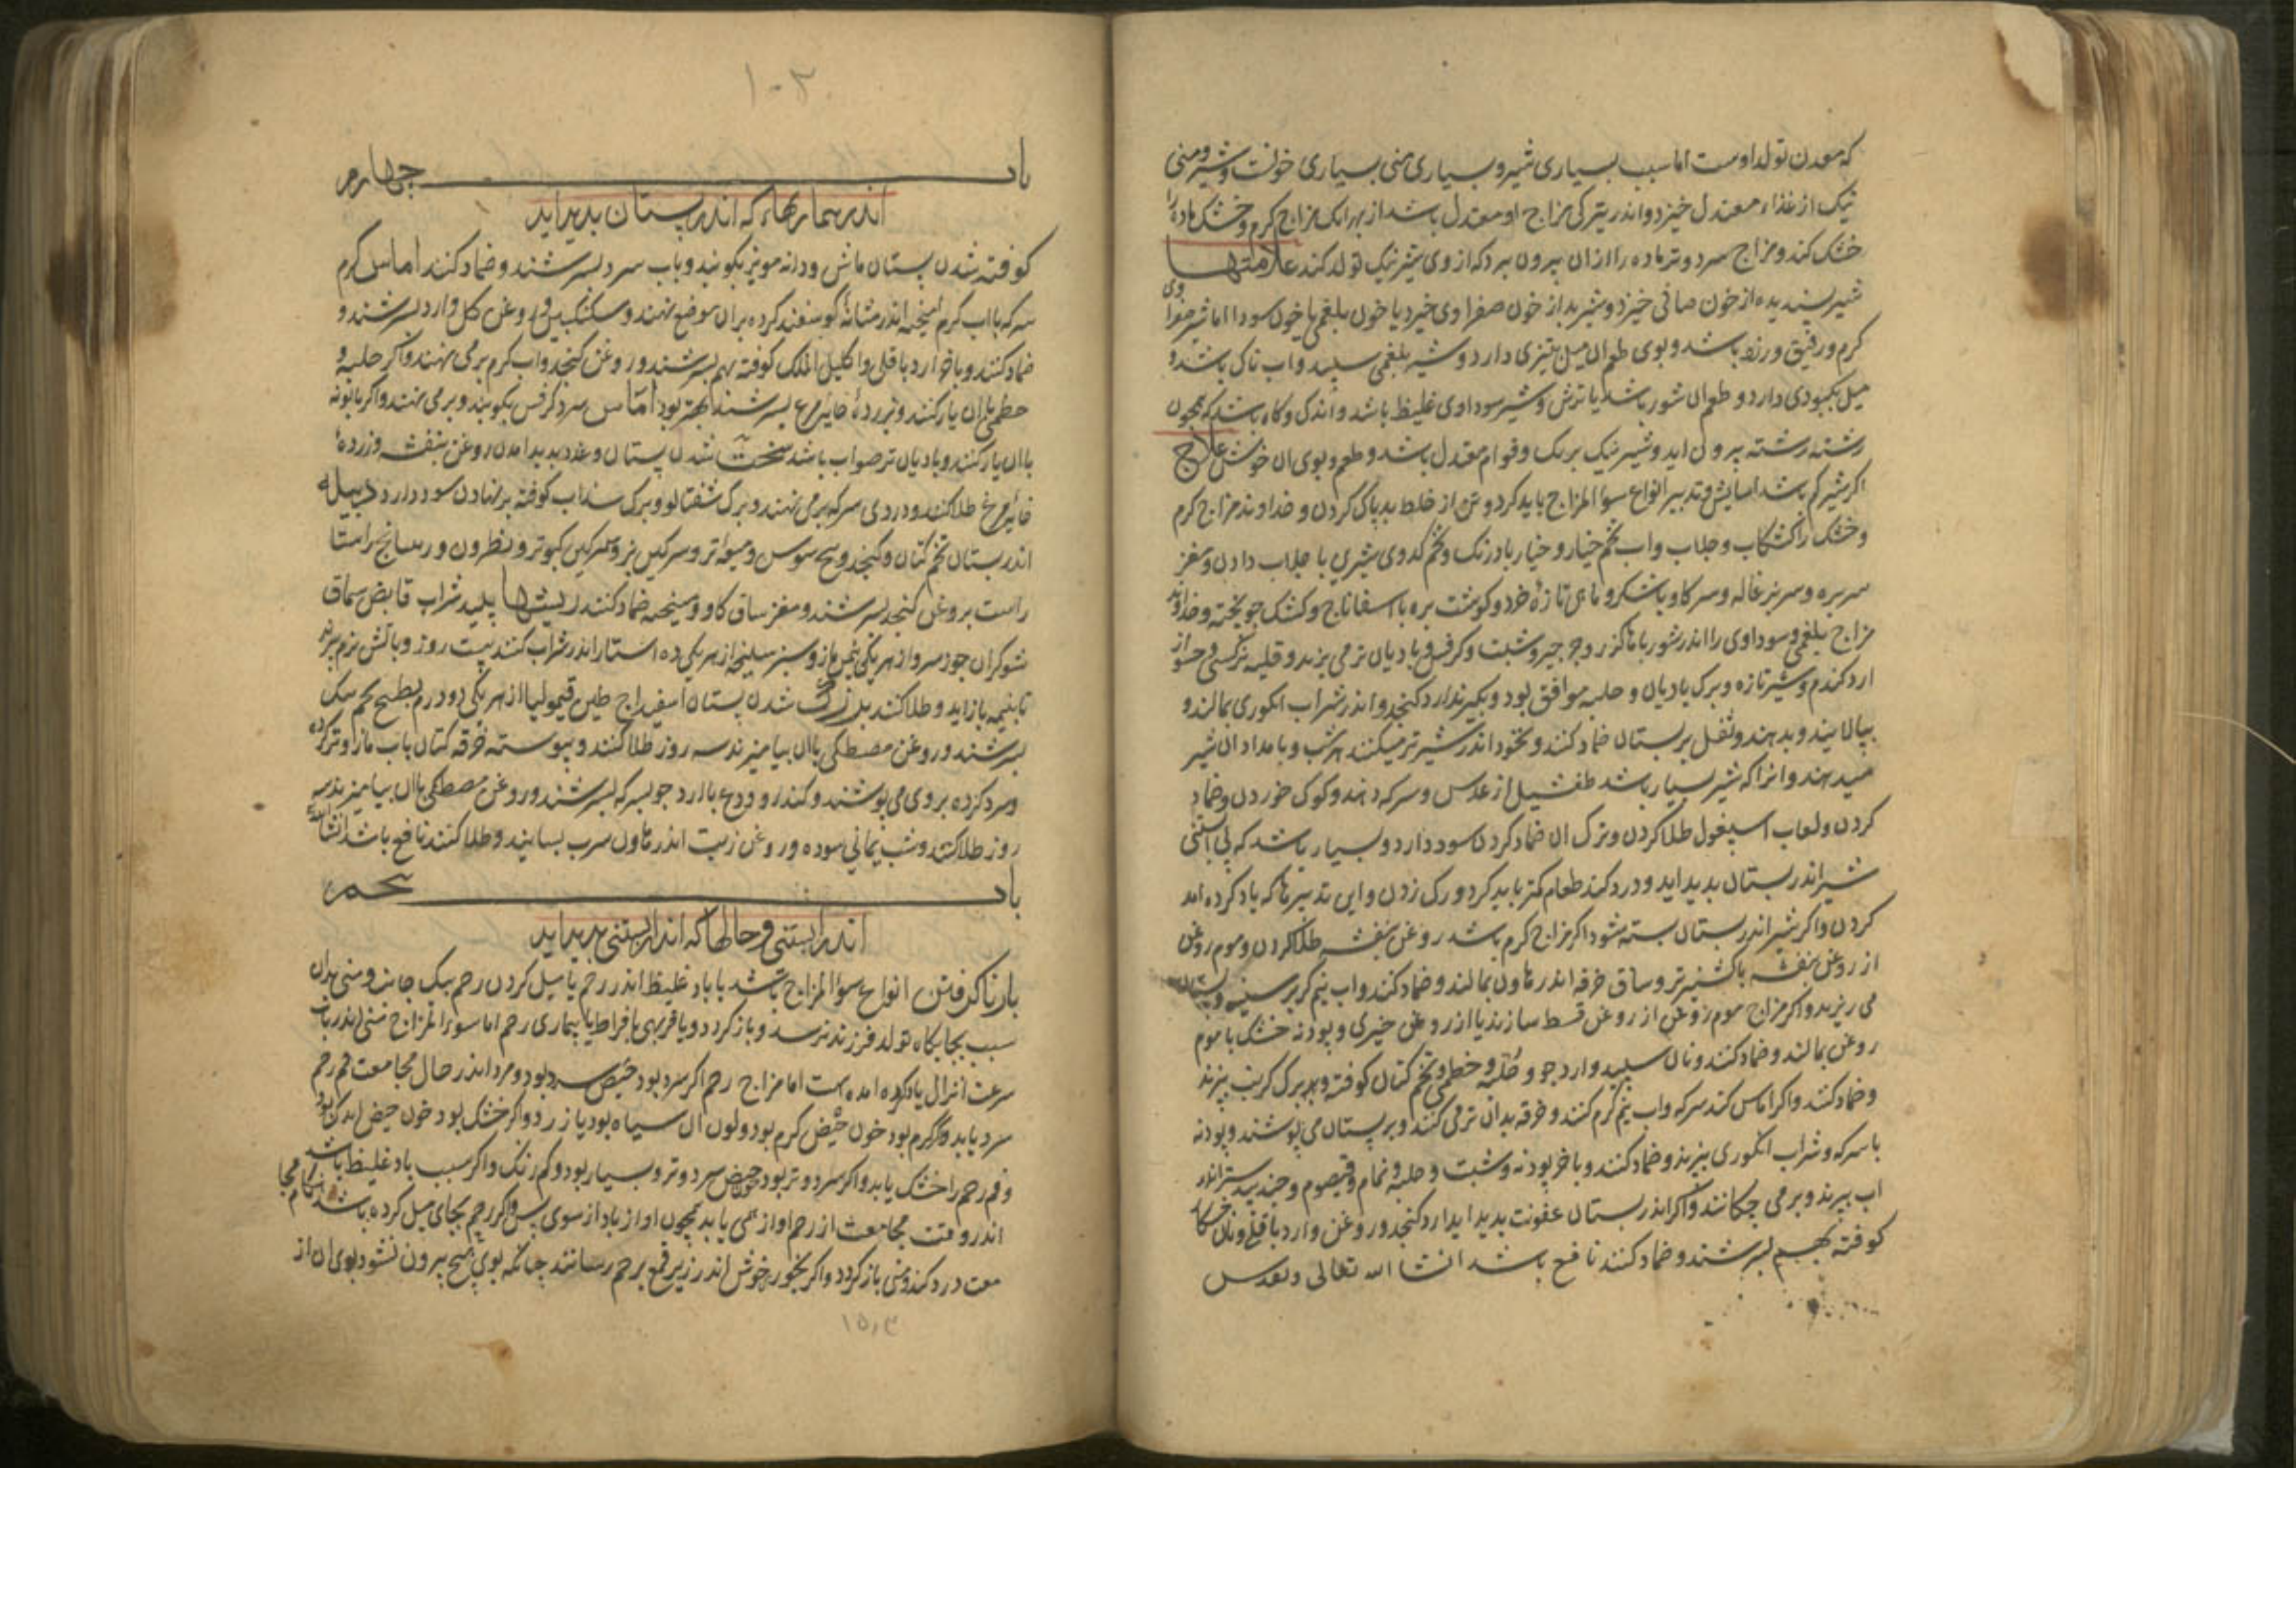 که معدن تولد اوست اما سبب بسیاری شیر و بسیاری منی بسیاری خونست و شیر و منی
نیک از غذاء معتدل خیزد و اندر بیتری مزاج او معتدل باشد از بهر انک مزاج کرم و خشک ماده را
خشک کند و مزاج سرد و تر ماده را ازان بیرون برد که از وی شیر نیک تولد کند علامتها
شیر پسندیده از خون صافی خیزد و شیر بد از خون صفراوی خیزد یا خون بلغمی یا خون سودا اما شیر صفراوی
کرم و رقیق و زرد باشد و بوی طعم ان میل بتیزی دارد و شیر بلغمی سپید و اب ناک باشد و
میل بکبودی دارد و طعم ان شور باشد یا ترش و شیر سوداوی غلیظ باشد و اندک و کاه باشد که همچون
رشته رشته بیرون اید و شیر نیک برنک و قوام معتدل باشد و طعم و بوی ان خوش علاج
اکر شیر کم باشد اسایش و تدبیر انواع سوٴ المزاج باید کرد و تن از خلط بد پاک کردن و خداوند مزاج کرم
و خشک را کشکاب و جلاب و اب تخم خیار و خیار بادرنک و تخم کدوی شیرین با جلاب دادن و مغز
سر بره و سر بزغاله و سر کاو باشکر و ماهی تازهٔ خرد و کوشت بره با اسفاناج و کشک جو پخته و خداوند
مزاج بلغمی و سوداوی را اندر شوربا ها کزر و جرجیر و شبت و کرفس و بادیان تر می پزند و قلیه نرکسی و حسو از
ارد کندم و شیر تازه و برک بادیان و حلبه موافق بود و بکیرند ارد کنجد و اندر شراب انکوری بمالند و
بپالایند و بدهند و ثفل بر پستان ضماد کنند و نخود اندر شیر تر میکنند هر شب و بامدادان شیر
میدهند و انرا که شیر بسیار باشد طفشیل از عدس و سرکه دهند و کوک خوردن و ضماد
کردن و لعاب اسپغول طلا کردن و برک ان ضماد کردن سود دارد و بسیار باشد که بی ابستنی
شیر اندر پستان پدید اید و درد کند طعام کمتر باید کرد و رک زدن و این تدبیرها که یاد کرده امد
کردن و اکر شیر اندر پستان بسته شود اکر مزاج کرم باشد روغن بنفشه طلا کردن و موم روغن
از روغن بنفشه با کشنیز تر و ساق خرفه اندر هاون بمالند و ضماد کنند و اب نیم کرم بر سینه و پستان
می ریزند و اکر مزاج موم روغن از روغن قسط سازند یا از روغن خیری و پودنه خشک با موم
روغن بمالند و ضماد کنند و نان سپید و ارد جو و حلبه و خطمی و تخم کتان کوفته و برک کرنب بپزند
و ضماد کنند و اکر اماس کند سرکه و اب نیم کرم کنند و خرقه بدان تر می کنند و بر پستان می پوشند و پودنه
با سرکه و شراب انکوری بپزند و ضماد کنند و باخر پودنه و شبت و حلبه و نمام و قیصوم و جندبیدستر اندر
اب بپزند و بر می چکانند و اکر اندر پستان عفونت پدید اید ارد کنجد و روغن و ارد باقلی و نان خشکار
کوفته بهم بسرشند و ضماد کنند نافع باشد انشا الله تعالی و تقدس
۱۰۳
باب چهارم
اندر بیماریهاء که اندر پستان پدید اید
کوفته شدن پستان ماش و دانه مویز بکوبند و باب سرد بسرشند و ضماد کنند اماس کرم
سرکه با اب کرم امیخته اندر مثانهٔ کوسفند کرده بران موضع نهند و سکنکبین و روغن کل و ارد بسرشند و
ضماد کنند و باخر ارد باقلی و اکلیل الملک کوفته بهم بسرشند و روغن کنجد و اب کرم بر می نهند و اکر حلبه و
خطمی با ان یار کنند و بزردهٔ خایه مرغ بسرشند بهتر بود اماس سرد کرفس بکوبند و بر می نهند و اکر بابونه
با ان یار کنند و بادیان تر صواب باشد سخت شدن پستان و غدد پدید امدن روغن بنفشه و زردهٔ
خایه مرغ طلا کنند و دردی سرکه بر می نهند و برک شفتالو و برک سداب کوفته بر نهادن سود دارد دبیله
اندر پستان تخم کتان و کنجد و بیخ سوس و میعهٔ تر و سرکین بز و سرکین کبوتر و نطرون و ریتیانج راستا
راست بروغن کنجد بسرشند و مغز ساق کاو و میبختج ضماد کنند ریشها پلید شراب قابض سماق
شوکران جوز سرو از هر یکی مازو سبز سلیخه از هر یکی ده استار اندر شراب کنند بیست روز و باتش نرم بپزند
تا بنیمه باز اید و طلا کنند بزرگ شدن پستان اسفیداج طین قیمولیا از هر یکی دو درم بطبیخ تخم بنک
بسرشند و روغن مصطکی با ان بیامیزند سه روز طلا کنند و پیوسته خرقه کتان باب مازو تر کرده
و سرد کرده بر وی می پوشند و کندر و ودع با ارد جو بسرکه بسرشند و روغن مصطکی با ان بیامیزند سه
روز طلا کنند و شب یمانی سوده و روغن زیت اندر هاون سرب بسایند و طلا کنند نافع باشد انشا الله
باب پنجم
اندر ابستنی و حالها که اندر ابستنی پدید اید
بار ناکرفتن انواع سوٴ المزاج باشد یا باد غلیظ اندر رحم یا میل کردن رحم بیک جانب و منی بدان
سبب بجایکاه تولد فرزند نرسد و باز کردد و یا فربهی بافراط یا بیماری رحم اما سوٴ المزاج منی اندر باب
سرعت انزال یاد کرده امده است اما مزاج رحم اکر سرد بود حیض سرد بود و مرد اندر حال مجامعت فم رحم
سرد یابد و اکر کرم بود خون حیض کرم بود و لون ان سیاه بود یا زرد و اکر خشک بود خون حیض اندک بود
و فم رحم را خشک یابد و اکر سرد و تر بود خون حیض سرد و تر و بسیار بود و کم رنک و اکر سبب باد غلیظ باشد
اندر وقت مجامعت از رحم اوازهمی یابد همچون اواز باد از سوی پس و اکر رحم بجای میل کرده باشد هنکام مجا
معت درد کند و منی باز کردد و اکر بخور خوش اندر زیر قمع برحم رسانند چنانکه بوی هیچ بیرون نشود بوی ان از
۱۵۰۳